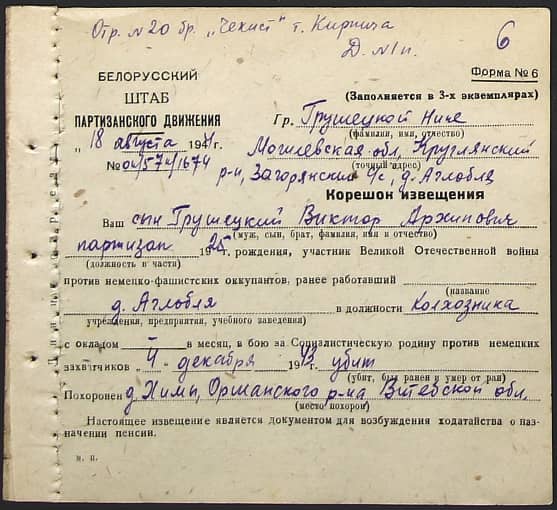 Отр. №20 бр. „Чекист" т. Кирпича
Д. №1п.
6
БЕЛОРУССКИЙ
ШТАБ
ПАРТИЗАНСКОГО ДВИЖЕНИЯ
Форма № 6
(Заполняется в 3-х экземплярах)
„18 августа 1944г.
№ 04/574/1674
Гр. Грушецкой Нине
(фамилия, имя, отчество)
Могилевская обл, Круглянский
(точный адрес)
р-н, Загорянский с/с, д. Аглобля
Корешок извещения
Ваш сын Грушецкий Виктор Архипович
(муж, сын, брат, фамилия, имя и отчество)
партизан 1925 г. рождения, участник Великой Отечественной войны
(должность в части)
против немецко-фашистских оккупантов, ранее работавший
(название
д. Аглобля в должности Колхозника
учреждения, предприятия, учебного заведения)
с окладом в месяц, в бою за Социалистическую родину против немецких
захватчиков „4 - декабря 1943г. убит
(убит, был ранен и умер от ран)
Похоронен д. Химы, Оршанского р-на Витебской обл.
(место похорон)
Настоящее извещение является документом для возбуждения ходатайства о наз-
начении пенсии.
м. п.